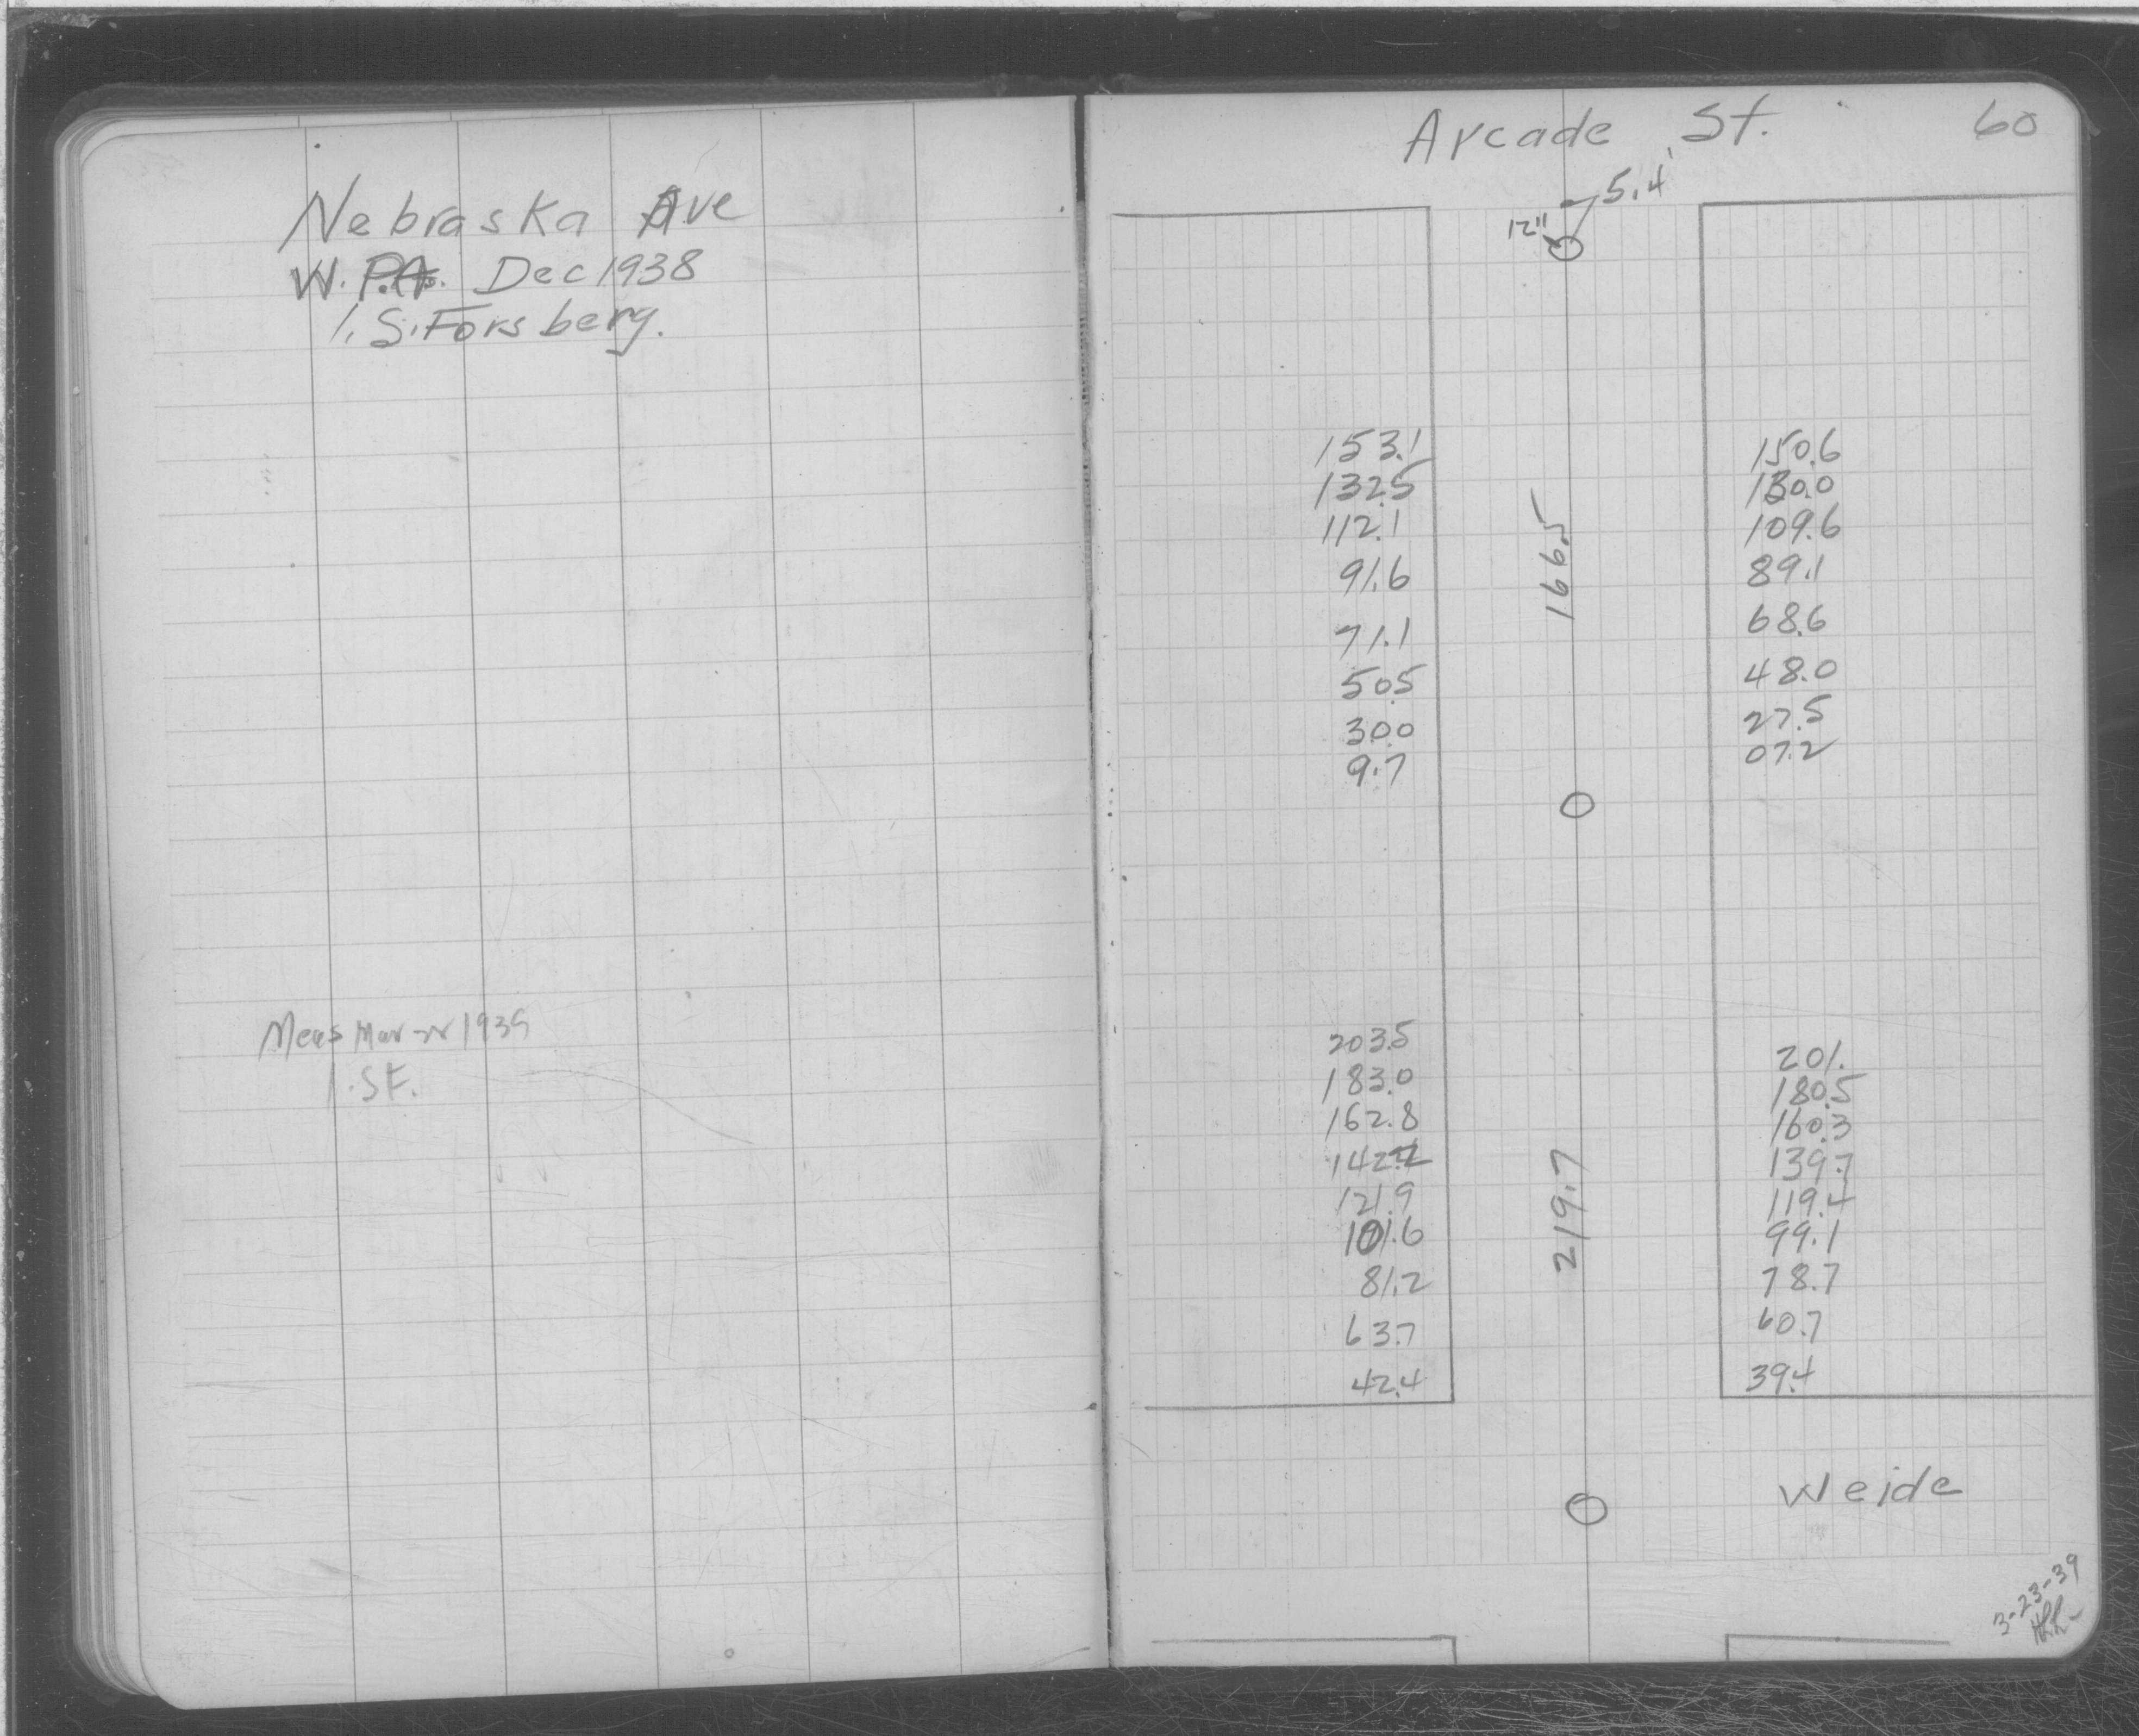 Nebraska Ave
W.P.A. Dec 1938
I. S. Forsberg.
Meas Mar 22 1939
I. S F.
Arcade St. 60
5.4'
12"
153.1 150.6
132.5 130.0
112.1 109.6
91.6 89.1
166.5
71.1 68.6
50.5 48.0
30.0 27.5
9.7 07.2
203.5 201.
183.0 180.5
162.8 160.3
142.2 139.7
121.9 119.4
219.7
101.6 99.1
81.2 78.7
63.7 60.7
42.4 39.4
Weide
3-23-39